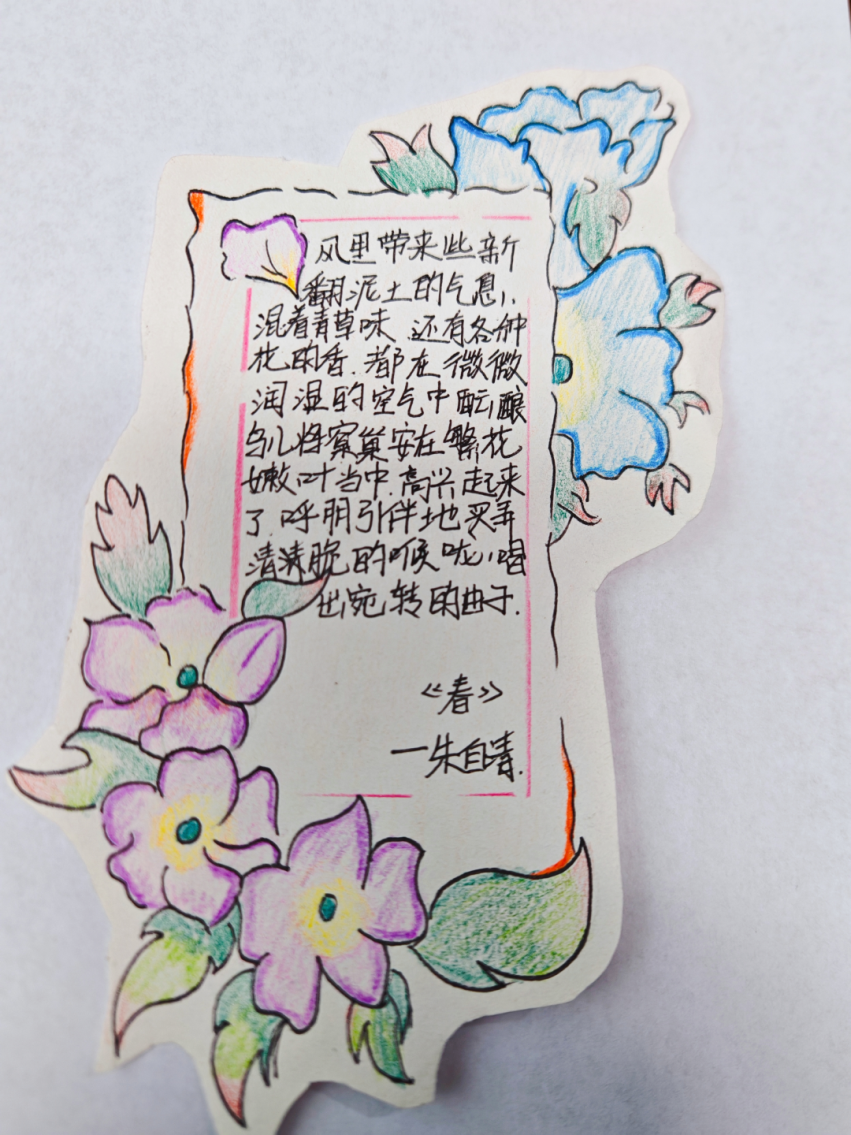 风里带来些新
翻泥土的气息,
混着青草味 还有各种
花的香.都在微微
润湿的空气中酝酿
鸟儿将窠巢安在繁花
嫩叶当中.高兴起来
了.呼朋引伴地卖弄
清清脆的喉咙,唱
出宛转的曲子.
《春》
—朱自清.